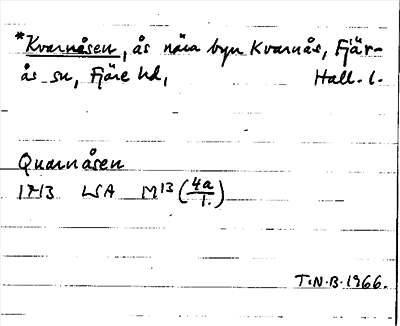 *Kvarnåsen, ås nära byn Kvarnås, Fjär-
ås sn, Fjäre hd, Hall. l.
Quarnåsen
1713 LSA M13 (4a/1.)
T.N.B. 1966.